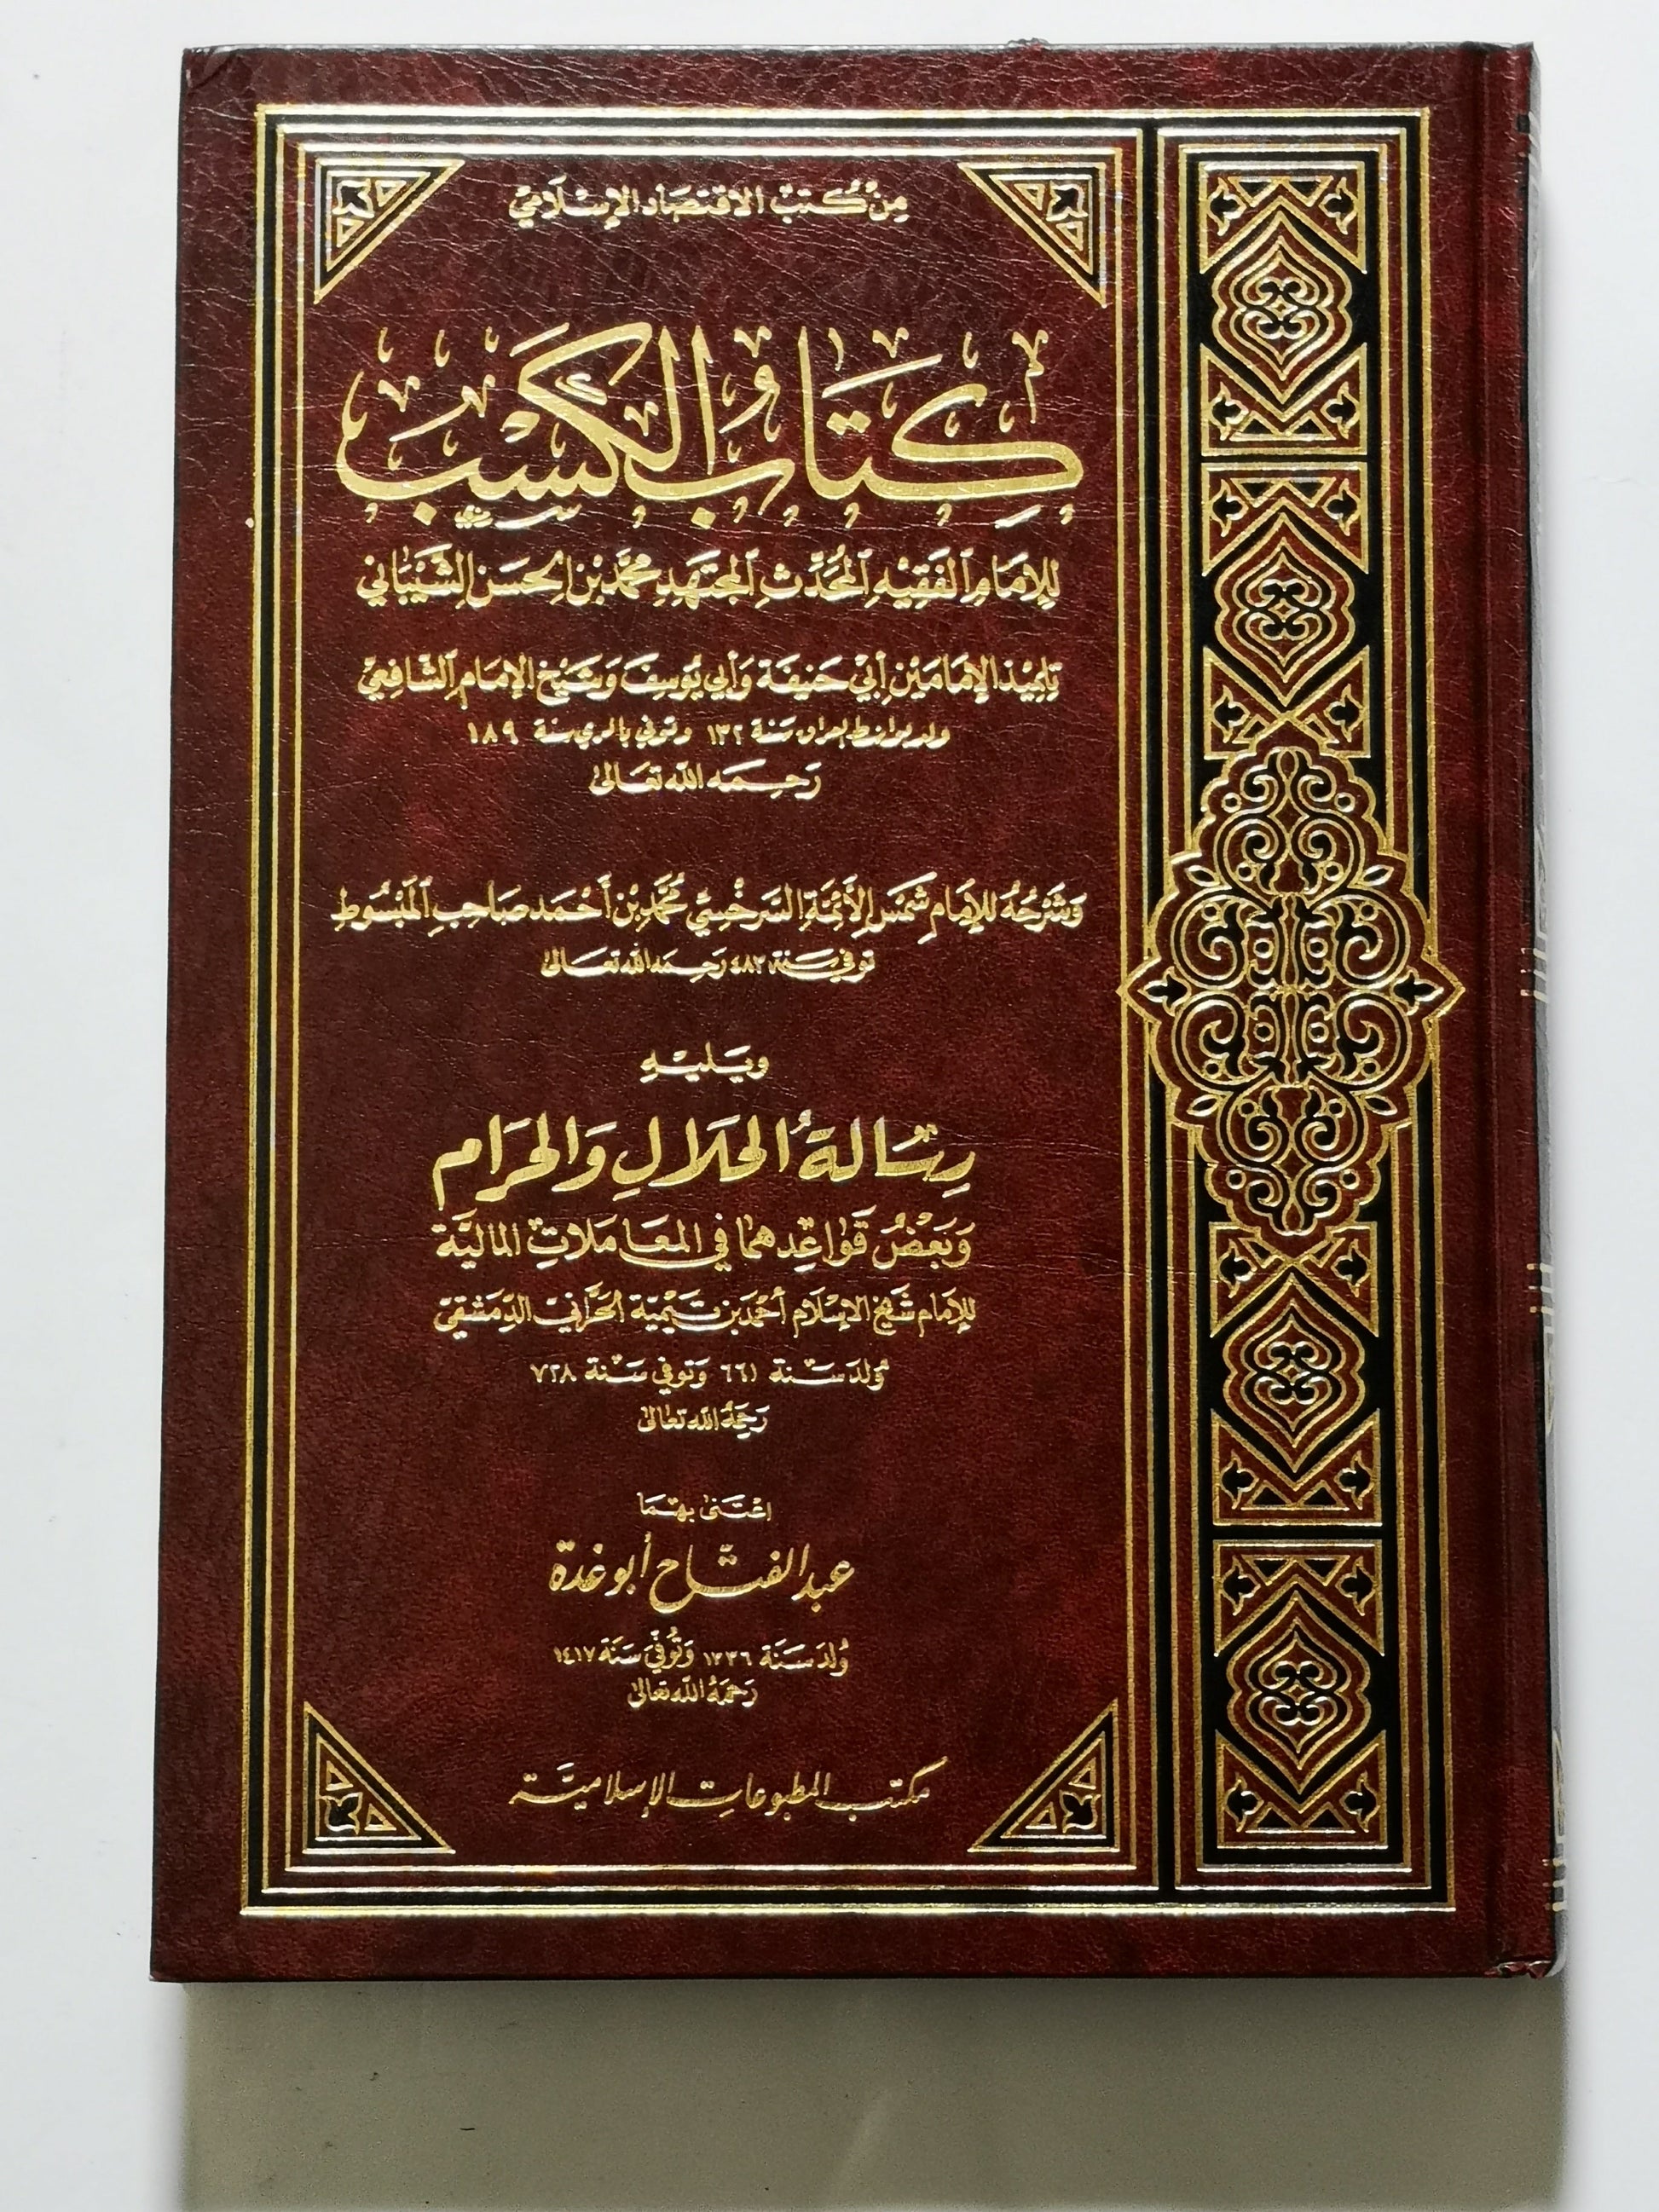 مِنْ كُتُبِ الاقتِصَادِ الإِسْلَامِيّ
كِتَابُ الكَسْبِ
لِلإِمَامِ الفَقِيْهِ المُحَدِّثِ المُجْتَهِدِ مُحَمَّد بْنِ الحَسَنِ الشَّيْبَانِي
تِلْمِيْذِ الإِمَامَيْنِ أَبِيْ حَنِيفَة وَأَبِي يُوسِفَ وَشَيْخِ الإِمَامِ الشَّافِعِيّ
ولد بواسط العراق سَنة ١٣٢ وتوفي بالري سنة ١٨٩
رَحِمَه اللّٰه تعَالىٰ
وَشَرْحُهُ لِلإِمَامِ شَمْسِ الأَئِمَّةِ السَّرَخْسِيِّ مُحَمَّدِ بْنِ أَحْمَد صَاحِبِ المَبْسُوطِ
توفي سَنة ٤٨٣ رَحِمَه اللّٰه تعَالىٰ
وَيَليْهِ
رِسَالَةُ الحَلَالِ وَالحَرَام
وَبَعْضُ قَوَاعِدِهمَا في المُعَامَلَاتِ المَاليَّة
لِلإِمَام شَيْخ الإِسْلَام أَحْمَد بن تَيْمِيَّة الحَرَّانِي الدِّمَشقِيّ
وُلدَ سَنة ٦٦١ وَتوفي سَنة ٧٢٨
رَحِمَهُ اللّٰه تعَالىٰ
اعْتَنىٰ بهِمَا
عبد الفتّاح أبو غدة
وُلدَ سَنَة ١٣٣٦ وَتُوُفِّيَ سَنَة ١٤١٧
رَحِمَهُ اللّٰه تعَالىٰ
مكتب المطبوعات الإسلاميَّة